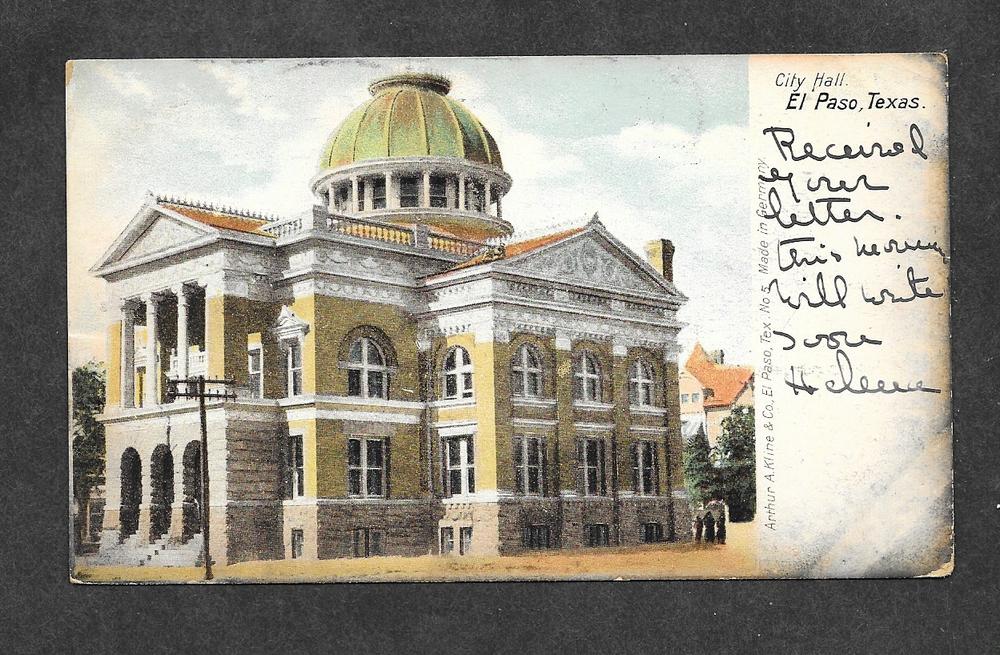 City Hall.
El Paso, Texas.
Received
your
letter.
this morning
will write
soon
Helene
Arthur A. Kline & Co., El Paso, Tex. No 5. Made in Germany